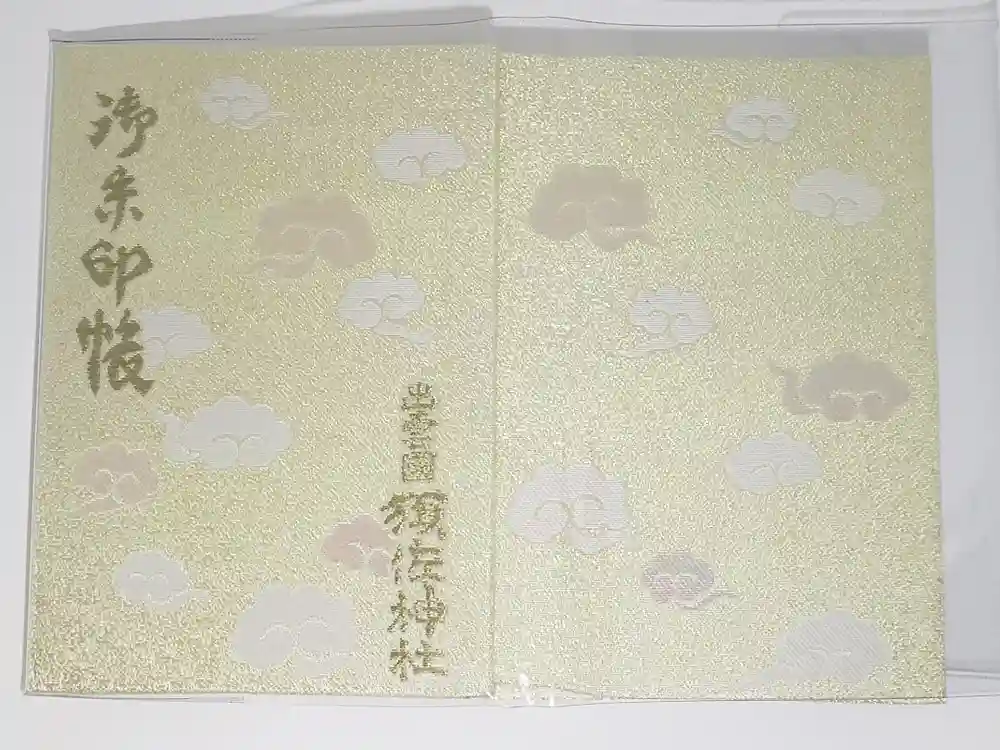 御朱印帳
出雲國
須佐神社